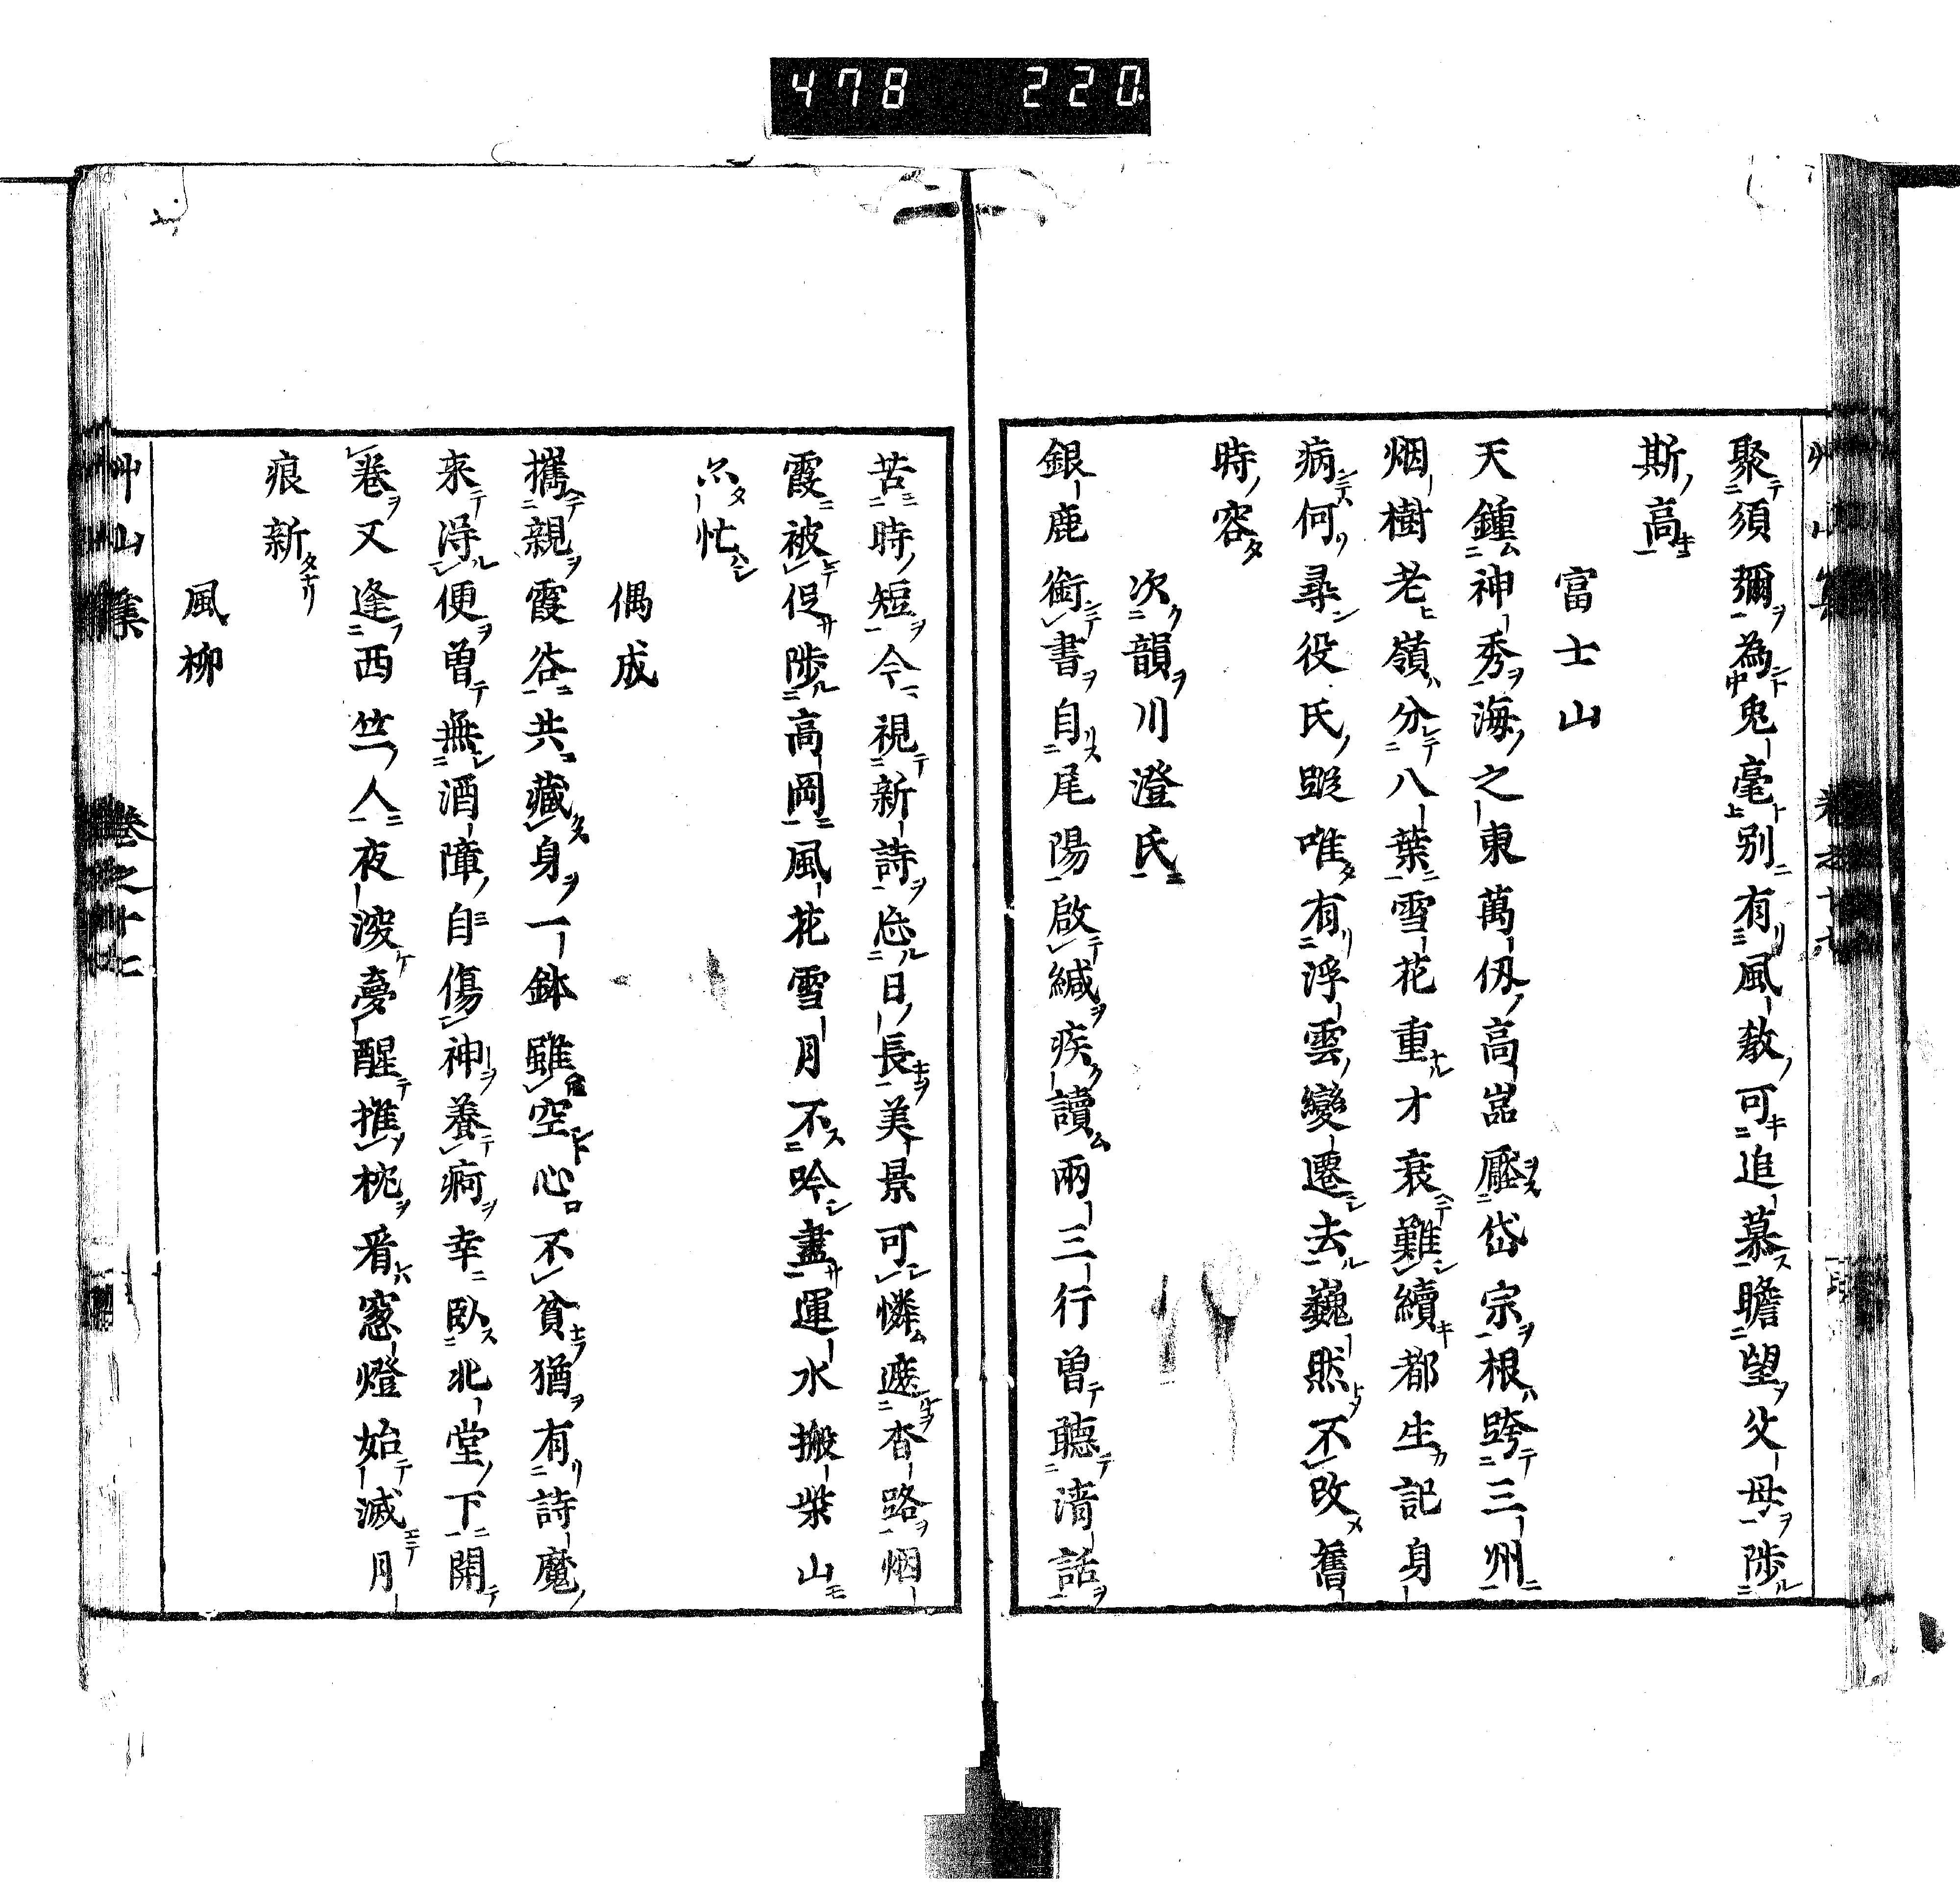 478 220
聚須彌為兔毫別有風教可追慕瞻望父母陟
斯高
富士山
天鍾神秀海之東萬仭高嵓壓岱宗根跨三州
烟樹老嶺分八葉雪花重才衰難續都生記身
病何尋役氏蹤唯有浮雲變遷去巍然不改舊
時容
次韻川澄氏
銀鹿銜書自尾陽啟緘疾讀兩三行曽聽清話
苦時短今視新詩忘日長美景可憐遮杳路烟
霞被促陟高岡風花雪月不吟盡運水搬柴山
忙
偶成
攜親霞谷共藏身一鉢雖空心不貧猶有詩魔
来淂便曽無酒障自傷神養痾幸臥北堂下開
卷又逢西竺人夜深夢醒推枕看窓燈始滅月
痕新
風柳
艸山集 卷之十七